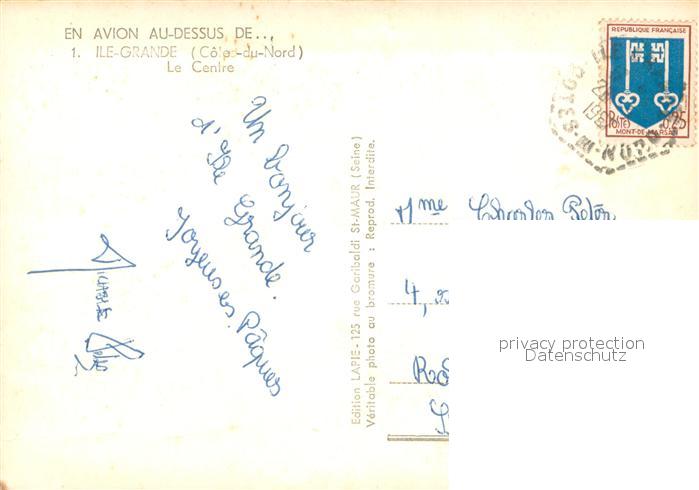 EN AVION AU-DESSUS DE...
1. ILE-GRANDE (Côtes-du-Nord)
Le Centre
REPUBLIQUE FRANÇAISE
POSTES 0,25
MONT-DE-MARSAN
Un bonjour
d'Ile Grande.
Joyeuses Pâques
Edition LAPIE-125 rue Garibaldi St-MAUR (Seine)
Véritable photo au bromure : Reprod. Interdite.
Mme
4,
privacy protection
Datenschutz